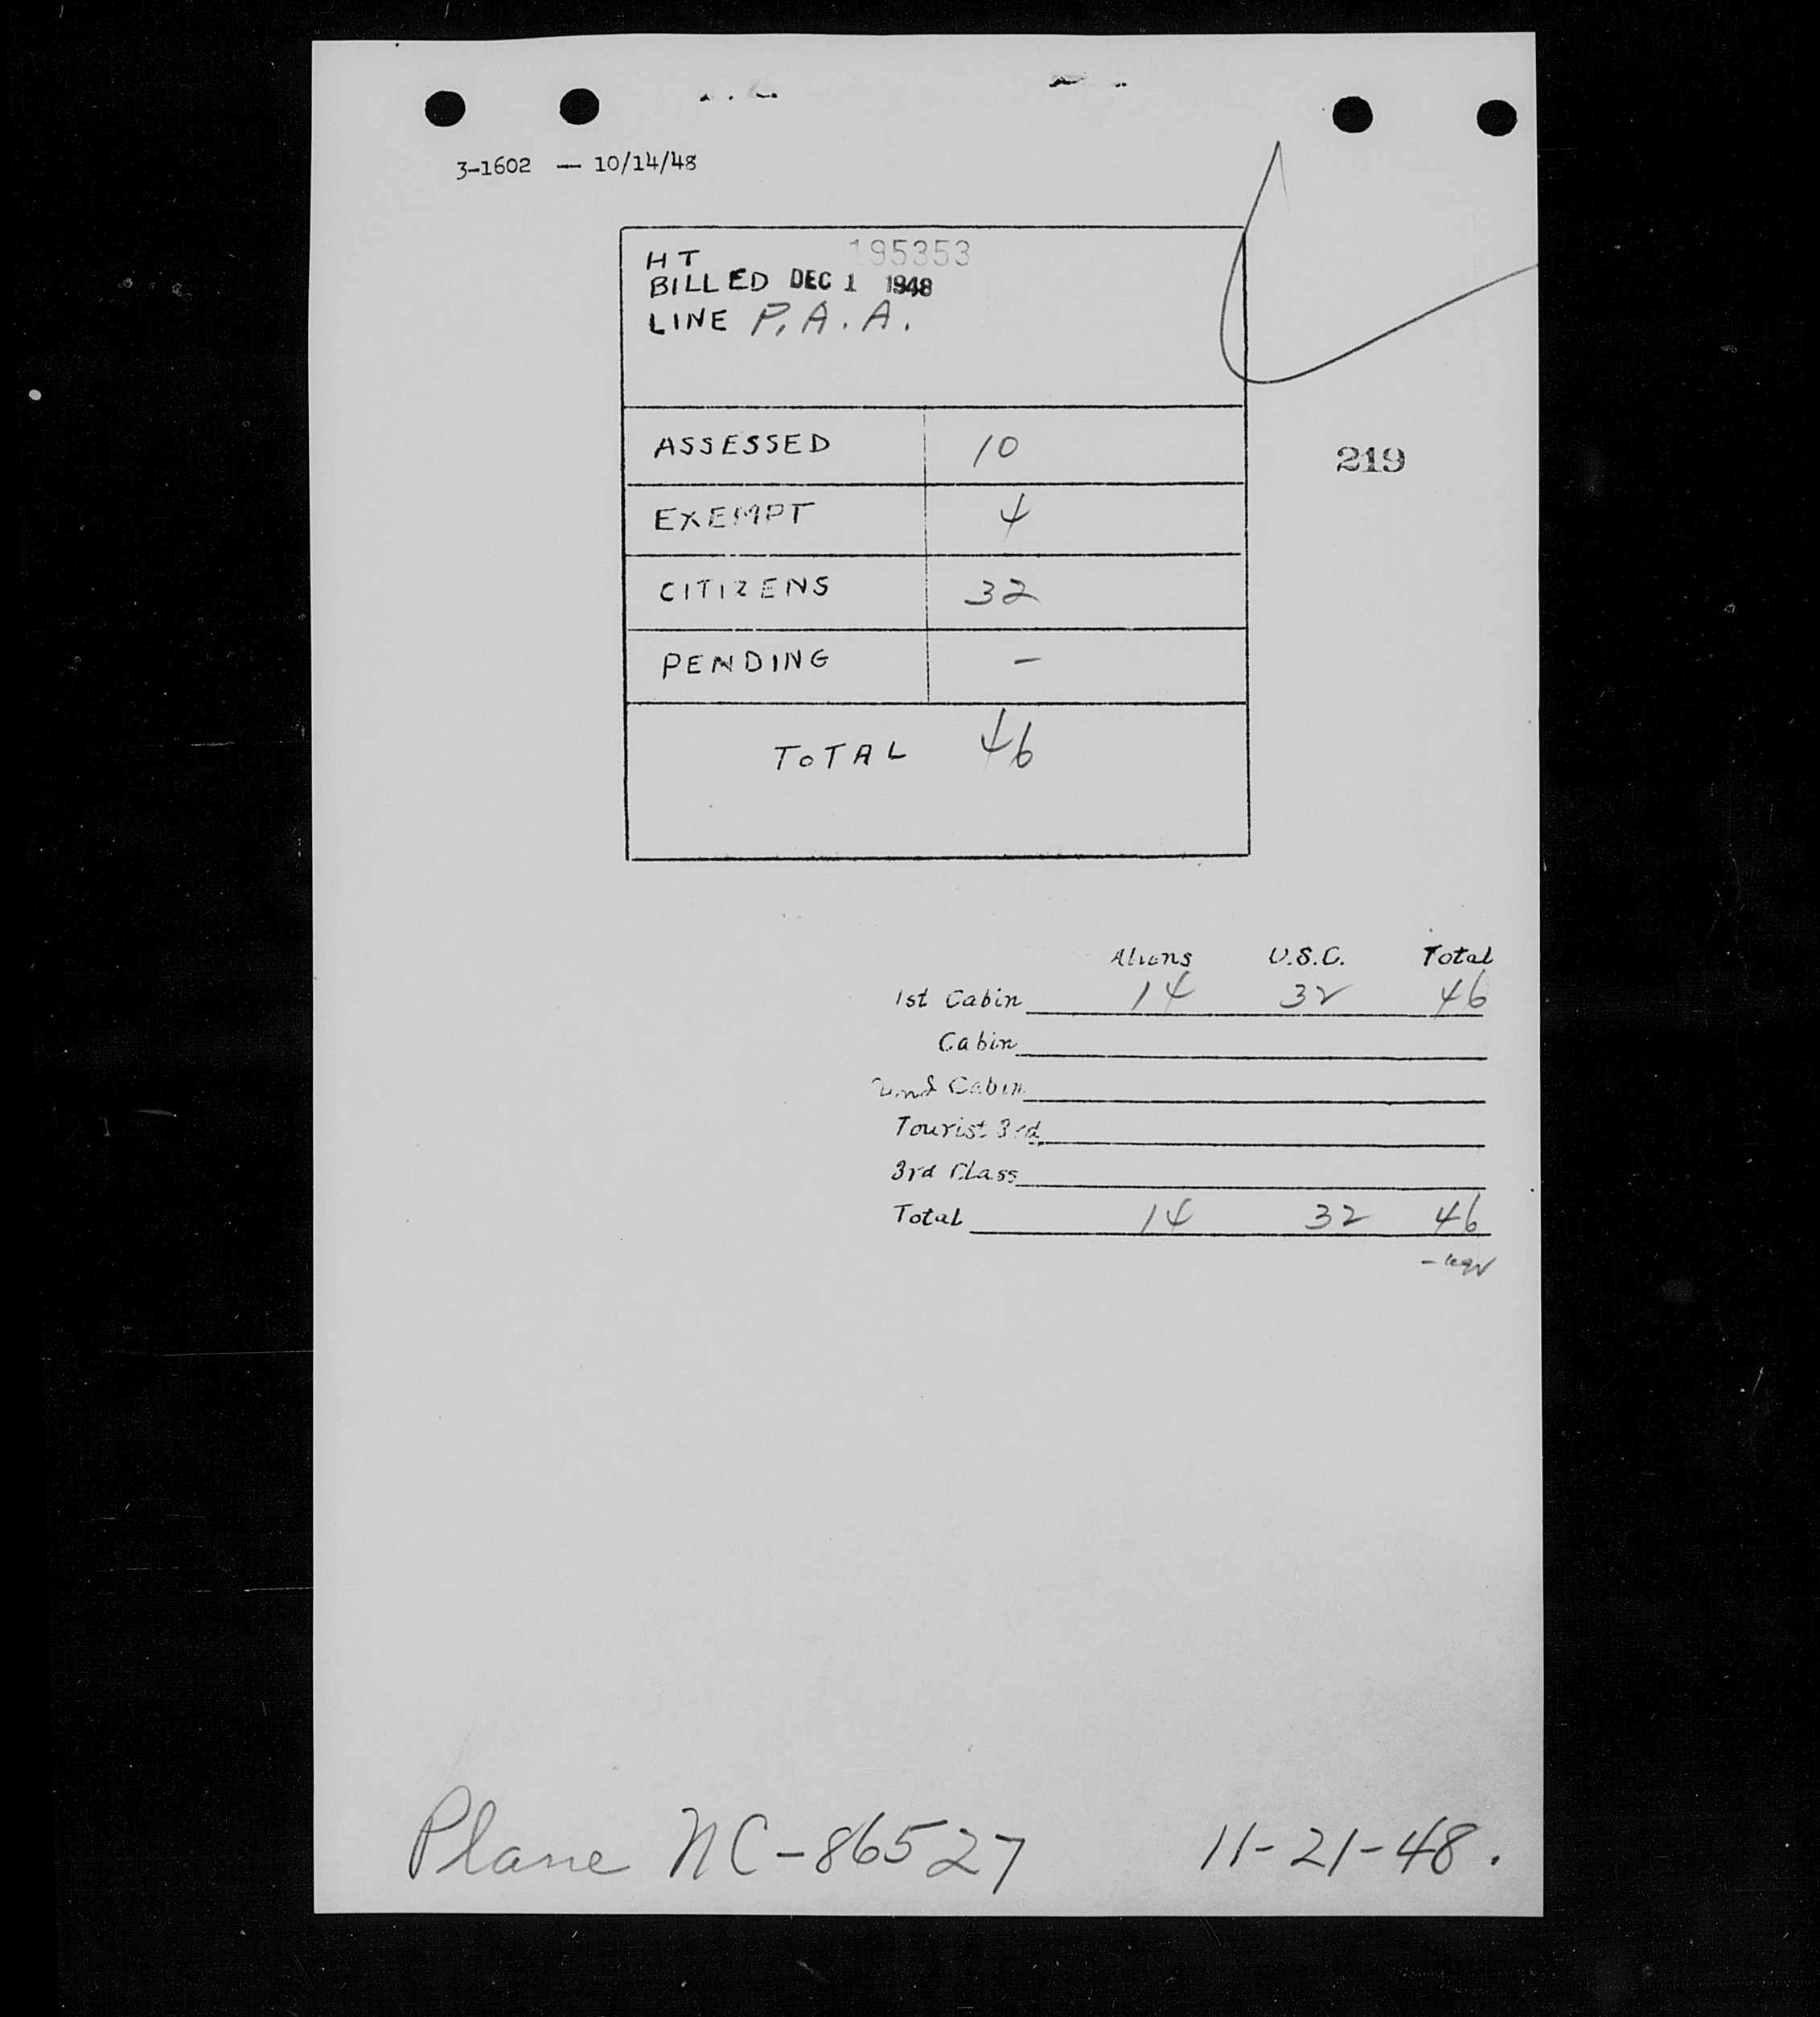 3-1602 — 10/14/48
HT 195353
BILLED DEC 1 1948
LINE P.A.A.
ASSESSED 10
219
EXEMPT 4
CITIZENS 32
PENDING –
TOTAL 46
Aliens U.S.C. Total
1st Cabin 14 32 46
Cabin
2nd Cabin
Tourist 3rd
3rd Class
Total 14 32 46
Plane NC-86527 11-21-48.